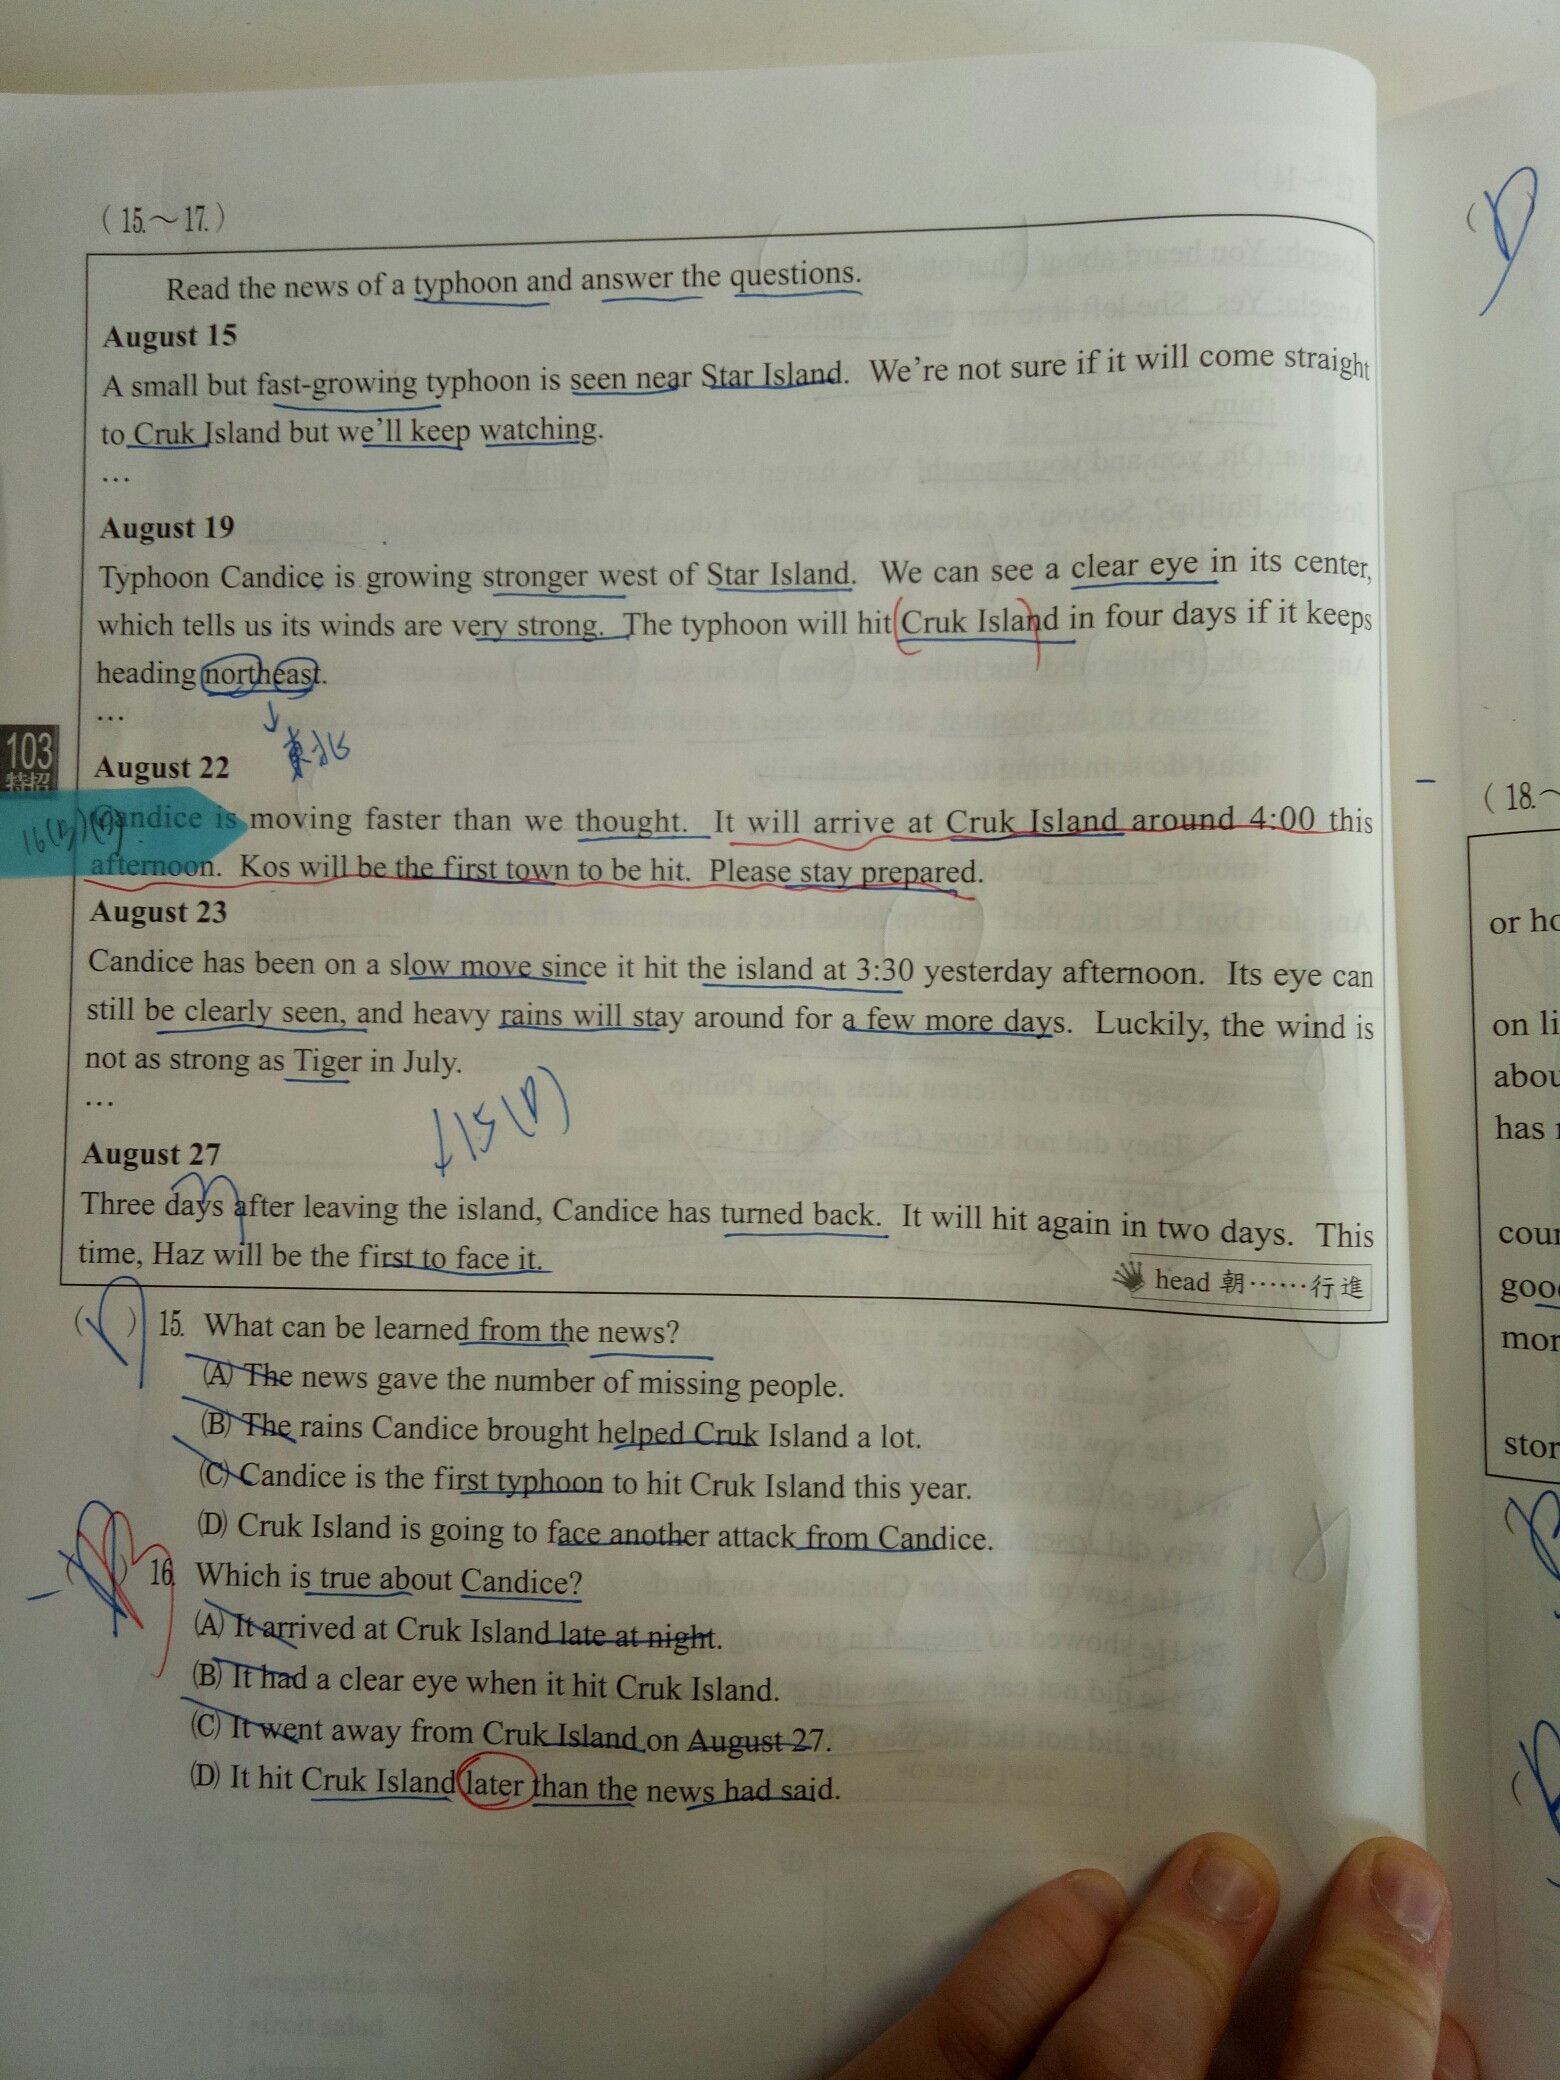 (15.～17.)
Read the news of a typhoon and answer the questions.
August 15
A small but fast-growing typhoon is seen near Star Island. We're not sure if it will come straight
to Cruk Island but we'll keep watching.
…
August 19
Typhoon Candice is growing stronger west of Star Island. We can see a clear eye in its center,
which tells us its winds are very strong. The typhoon will hit Cruk Island in four days if it keeps
heading northeast.
…
東北
103
特招
August 22
Candice is moving faster than we thought. It will arrive at Cruk Island around 4:00 this
16(B)(D)
afternoon. Kos will be the first town to be hit. Please stay prepared.
August 23
Candice has been on a slow move since it hit the island at 3:30 yesterday afternoon. Its eye can
still be clearly seen, and heavy rains will stay around for a few more days. Luckily, the wind is
not as strong as Tiger in July.
…
15(D)
August 27
Three days after leaving the island, Candice has turned back. It will hit again in two days. This
time, Haz will be the first to face it.
head 朝……行進
(D) 15. What can be learned from the news?
(A) The news gave the number of missing people.
(B) The rains Candice brought helped Cruk Island a lot.
(C) Candice is the first typhoon to hit Cruk Island this year.
(D) Cruk Island is going to face another attack from Candice.
16. Which is true about Candice?
(A) It arrived at Cruk Island late at night.
(B) It had a clear eye when it hit Cruk Island.
(C) It went away from Cruk Island on August 27.
(D) It hit Cruk Island later than the news had said.
(18.～
or ho
on li
abou
has
cour
good
mor
stor